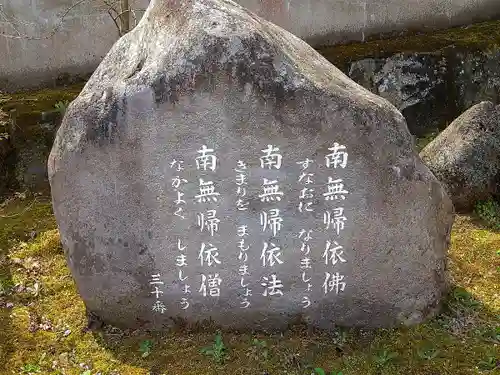 南無帰依佛
すなおに なりましょう
南無帰依法
きまりを まもりましょう
南無帰依僧
なかよく しましょう